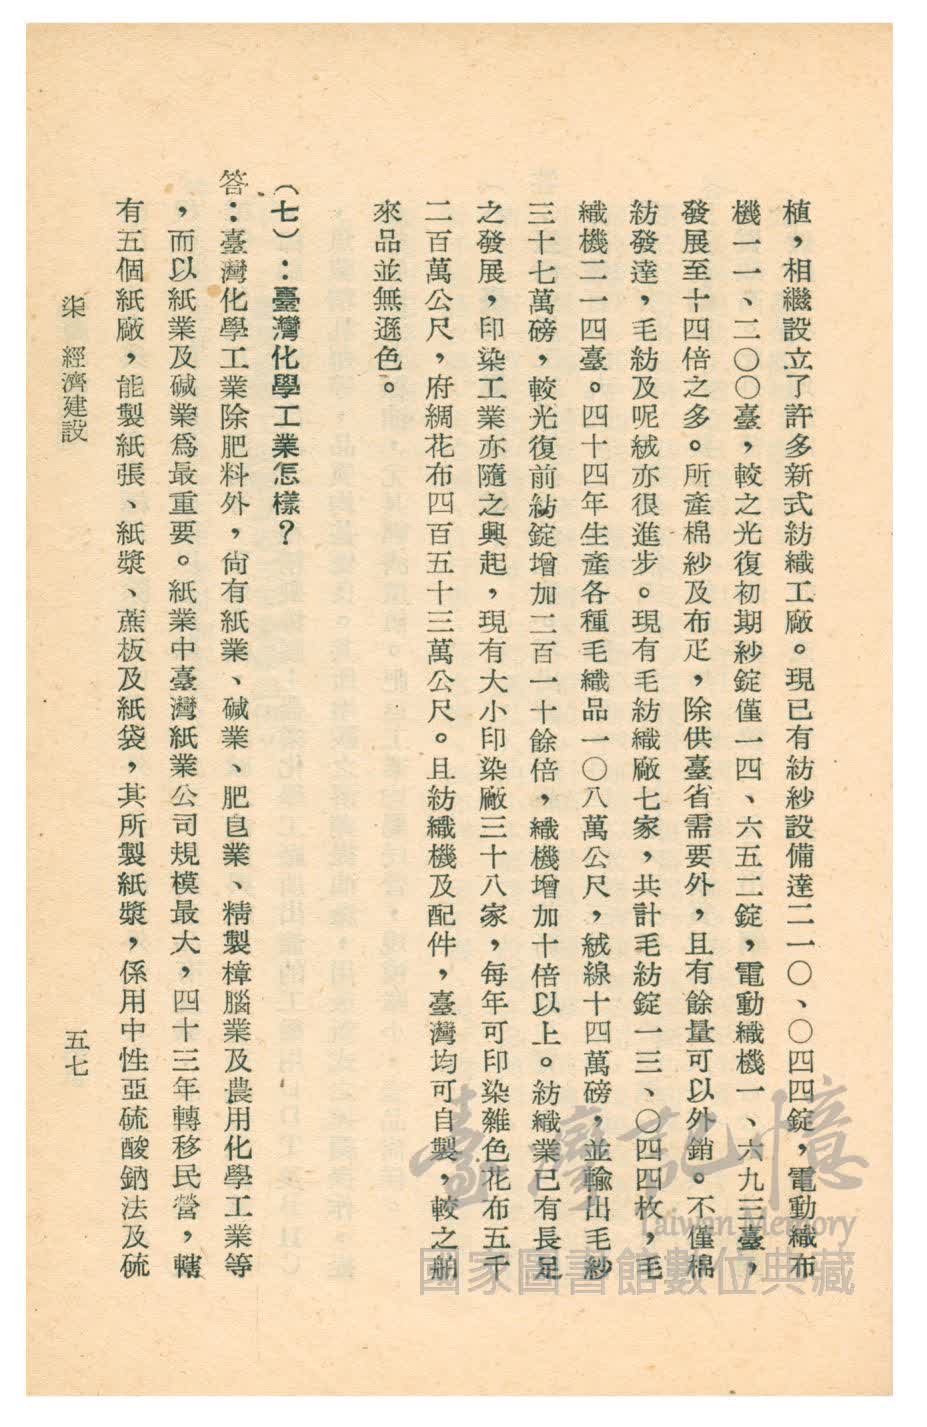 植，相繼設立了許多新式紡織工廠。現已有紡紗設備達二一〇、〇四四錠，電動織布
機一一、二〇〇臺，較之光復初期紗錠僅一四、六五二錠，電動織機一、六九三臺，
發展至十四倍之多。所產棉紗及布疋，除供臺省需要外，且有餘量可以外銷。不僅棉
紡發達，毛紡及呢絨亦很進步。現有毛紡織廠七家，共計毛紡錠一三、〇四四枚，毛
織機二一四臺。四十四年生產各種毛織品一〇八萬公尺，絨線十四萬磅，並輸出毛紗
三十七萬磅，較光復前紡錠增加三百一十餘倍，織機增加十倍以上。紡織業已有長足
之發展，印染工業亦隨之興起，現有大小印染廠三十八家，每年可印染雜色花布五千
二百萬公尺，府綢花布四百五十三萬公尺。且紡織機及配件，臺灣均可自製，較之舶
來品並無遜色。
（七）：臺灣化學工業怎樣？
答：臺灣化學工業除肥料外，尚有紙業、碱業、肥皂業、精製樟腦業及農用化學工業等
，而以紙業及碱業爲最重要。紙業中臺灣紙業公司規模最大，四十三年轉移民營，轄
有五個紙廠，能製紙張、紙漿、蔗板及紙袋，其所製紙漿，係用中性亞硫酸鈉法及硫
柒　經濟建設
五七
臺灣記憶
Taiwan Memory
國家圖書館數位典藏